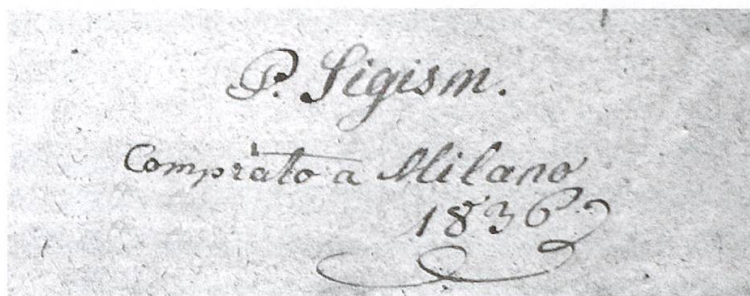 P. Sigism.
Comprato a Milano
1836